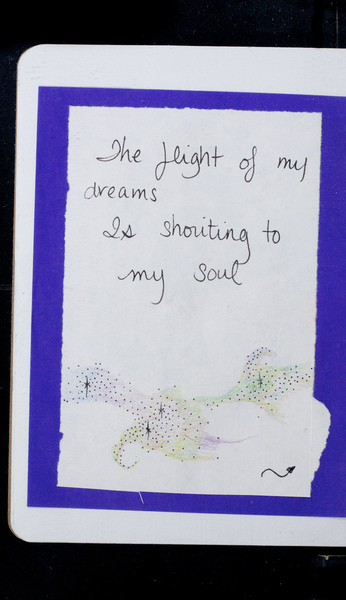 The flight of my
dreams
Is shouting to
my soul